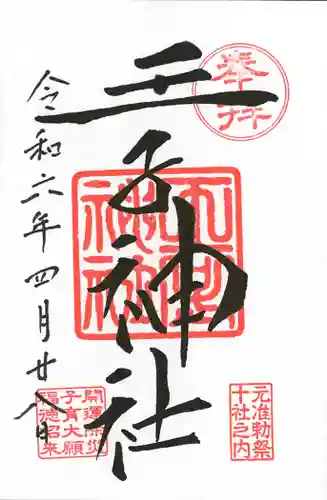 奉拝
元准勅祭
十社之内
王子神社
王子
神社
令和六年四月廿八日
開運除災
子育大願
福徳招来